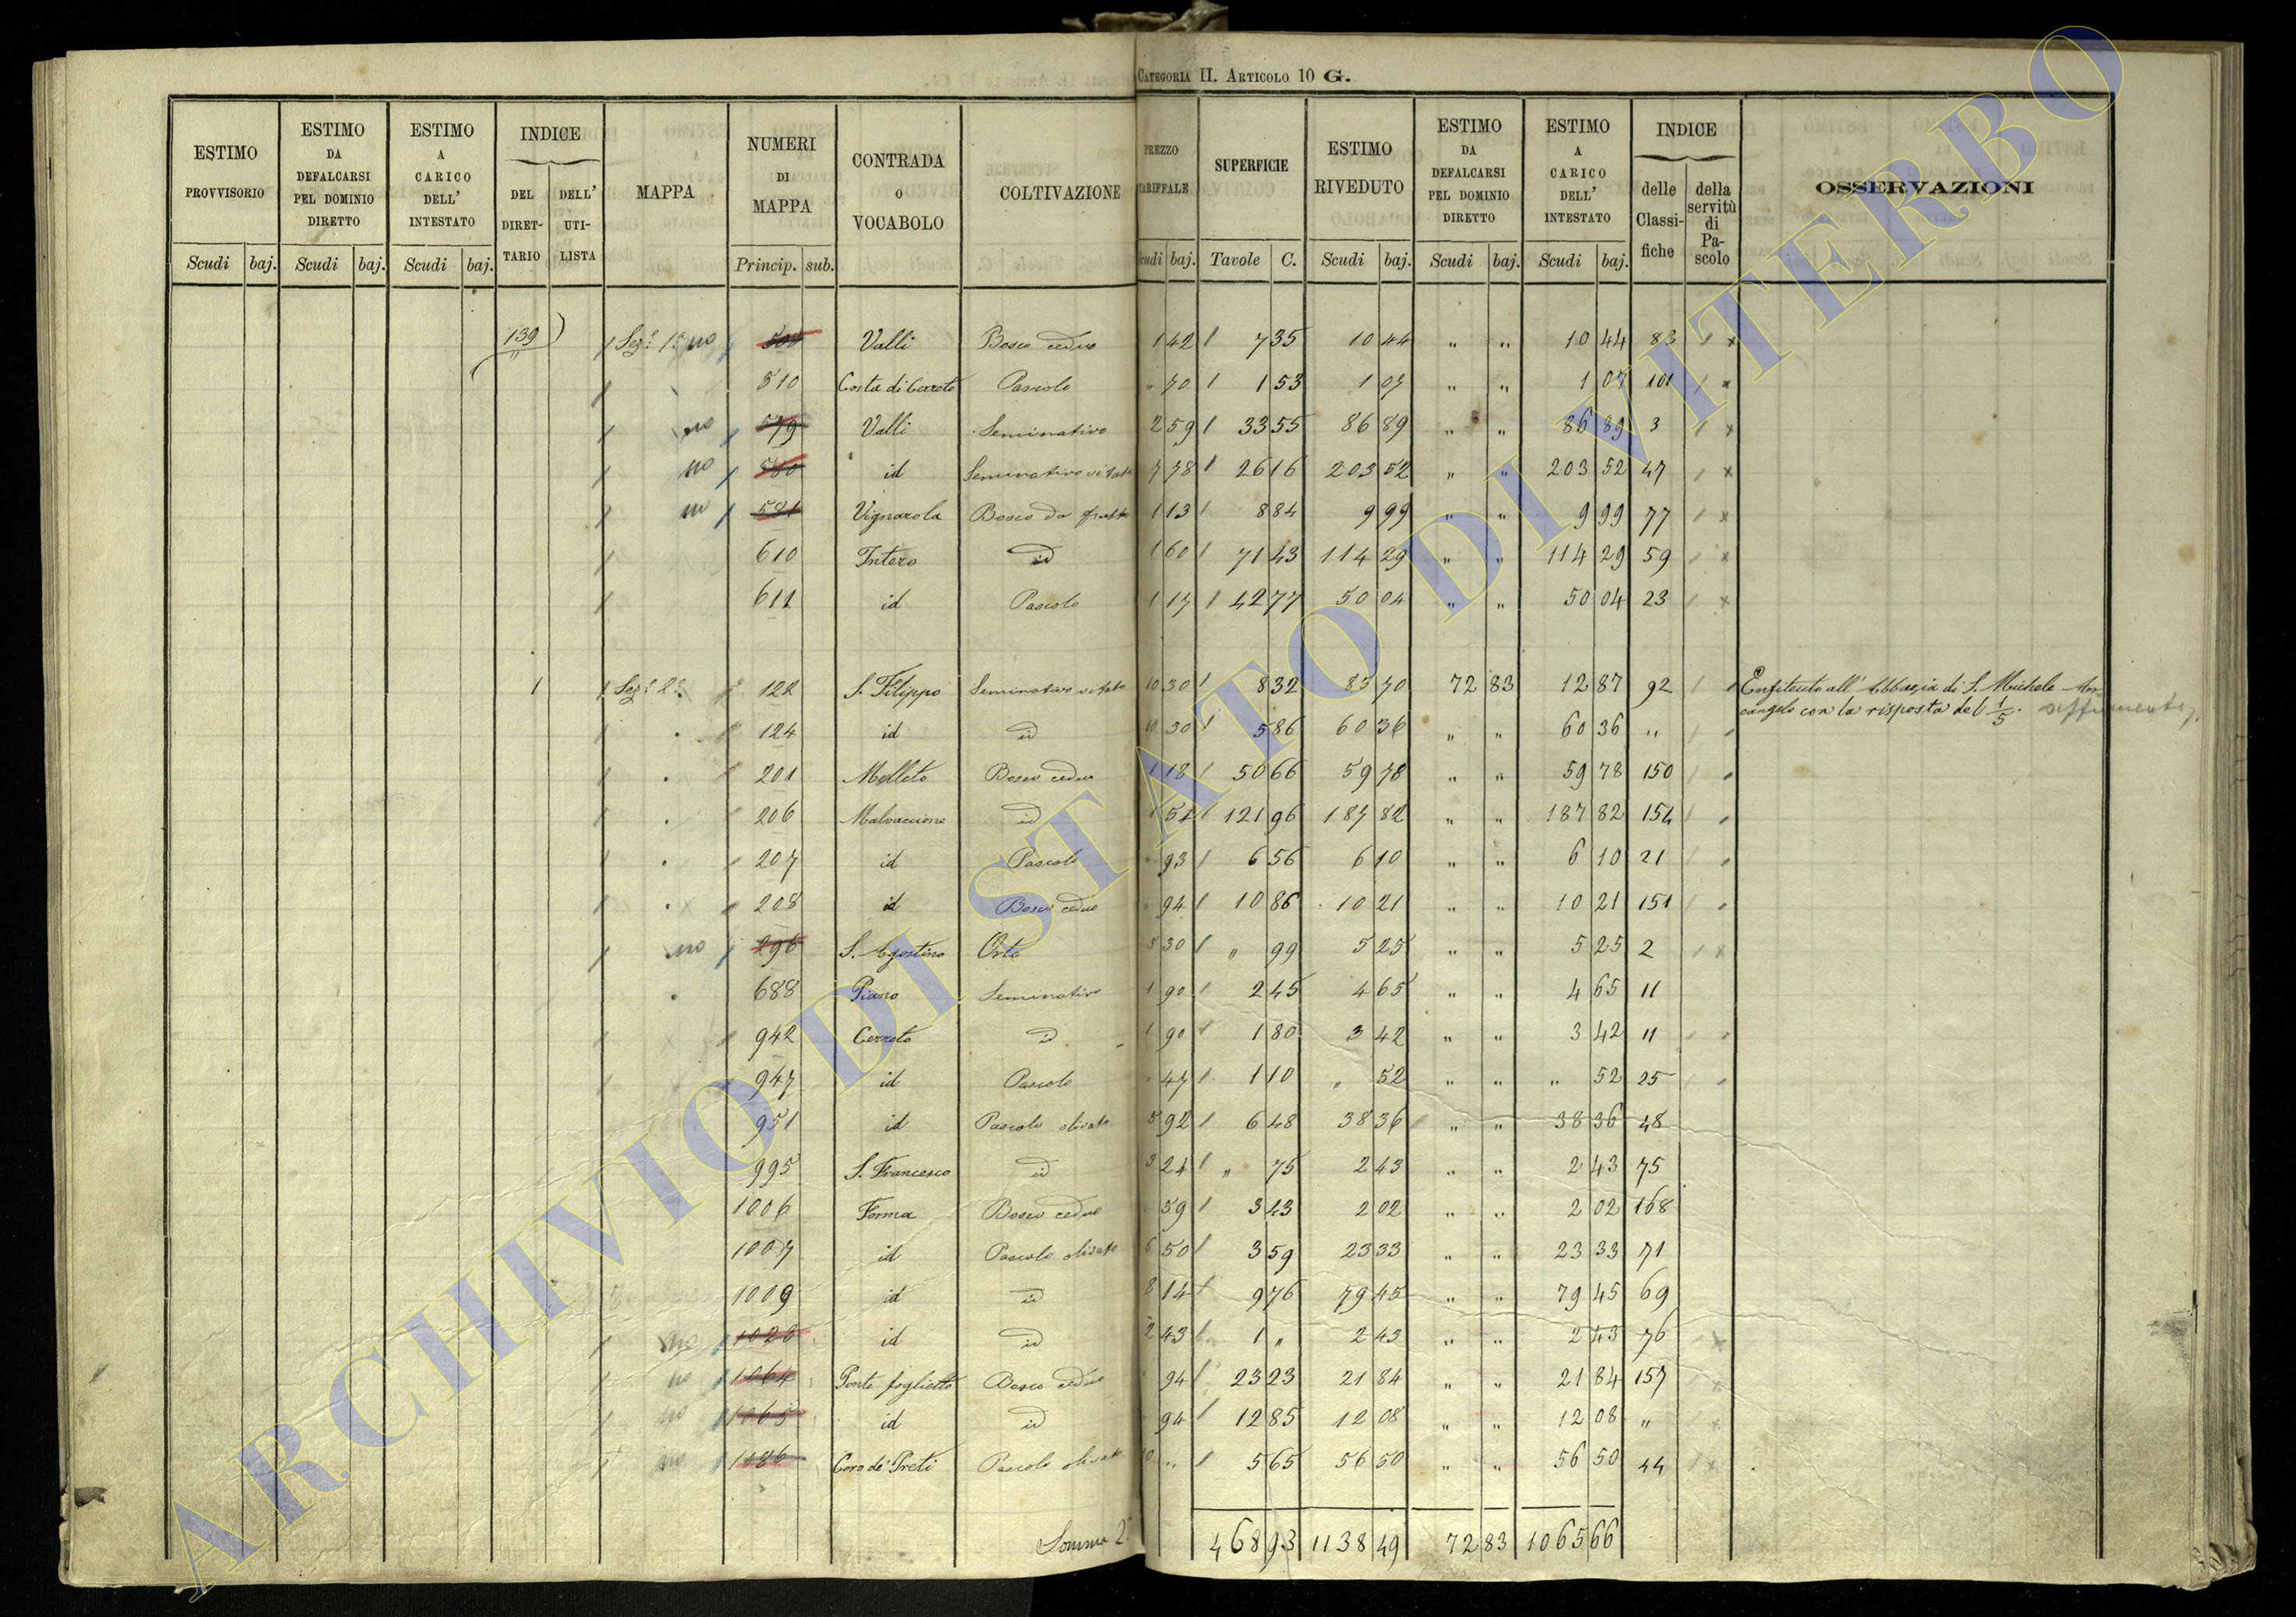 CATEGORIA II. ARTICOLO 10 G.
ESTIMO PROVVISORIO | ESTIMO DA DEFALCARSI PEL DOMINIO DIRETTO | ESTIMO A CARICO DELL' INTESTATO | INDICE DEL DIRETTARIO | DELL' UTILISTA | MAPPA | NUMERI DI MAPPA | CONTRADA o VOCABOLO | COLTIVAZIONE | PREZZO TARIFFALE | SUPERFICIE | ESTIMO RIVEDUTO | ESTIMO DA DEFALCARSI PEL DOMINIO DIRETTO | ESTIMO A CARICO DELL' INTESTATO | INDICE delle Classifiche | della servitù di Pascolo | OSSERVAZIONI
Scudi baj. Scudi baj. Scudi baj. Princip. sub. Scudi baj. Tavole C. Scudi baj. Scudi baj. Scudi baj.
139 Sez.e 1a no Valli Bosco ceduo 1 42 7 35 10 44 " " 10 44 83
510 Costa di Cerreto Pascolo " 70 1 53 1 07 " " 1 07 101
no 579 Valli Seminativo 2 59 33 55 86 89 " " 86 89 3
no 580 id Seminativo vitato 7 78 26 16 203 52 " " 203 52 47
no 581 Vignarola Bosco da frutto 1 13 8 84 9 99 " " 9 99 77
610 Intero id 1 60 71 43 114 29 " " 114 29 59
611 id Pascolo 1 17 42 77 50 04 " " 50 04 23
1 Sez.e 2a 122 S. Filippo Seminativo vitato 10 30 8 32 85 70 72 83 12 87 92 Enfiteuto all' Abbazia di S. Michele Ar-
cangelo con la risposta del 1/5.
124 id id 10 30 5 86 60 36 " " 60 36 "
201 Melleto Bosco ceduo 1 18 50 66 59 78 " " 59 78 150
206 Malvaccione id 1 54 121 96 187 82 " " 187 82 154
207 id Pascolo 93 6 56 6 10 " " 6 10 21
208 id Bosco ceduo 94 10 86 10 21 " " 10 21 151
no 296 S. Agostino Orto 5 30 " 99 5 25 " " 5 25 2
688 Piano Seminativo 1 90 2 45 4 65 " " 4 65 11
942 Cerreto id 1 90 1 80 3 42 " " 3 42 11
947 id Pascolo 47 1 10 " 52 " " " 52 25
951 id Pascolo olivato 5 92 6 48 38 36 " " 38 36 48
995 S. Francesco id 3 24 " 75 2 43 " " 2 43 75
1006 Forma Bosco ceduo 59 3 43 2 02 " " 2 02 168
1007 id Pascolo olivato 6 50 3 59 23 33 " " 23 33 71
1009 id id 8 14 9 76 79 45 " " 79 45 69
no id id 2 43 1 " 2 43 " " 2 43 76
no 1064 Ponte foglietto Bosco ceduo 94 23 23 21 84 " " 21 84 157
no 1065 id id 94 12 85 12 08 " " 12 08 "
no Coro de' Preti Pascolo olivato 10 " 5 65 56 50 " " 56 50 44
Somma 2a 468 93 1138 49 72 83 1065 66
ARCHIVIO DI STATO DI VITERBO